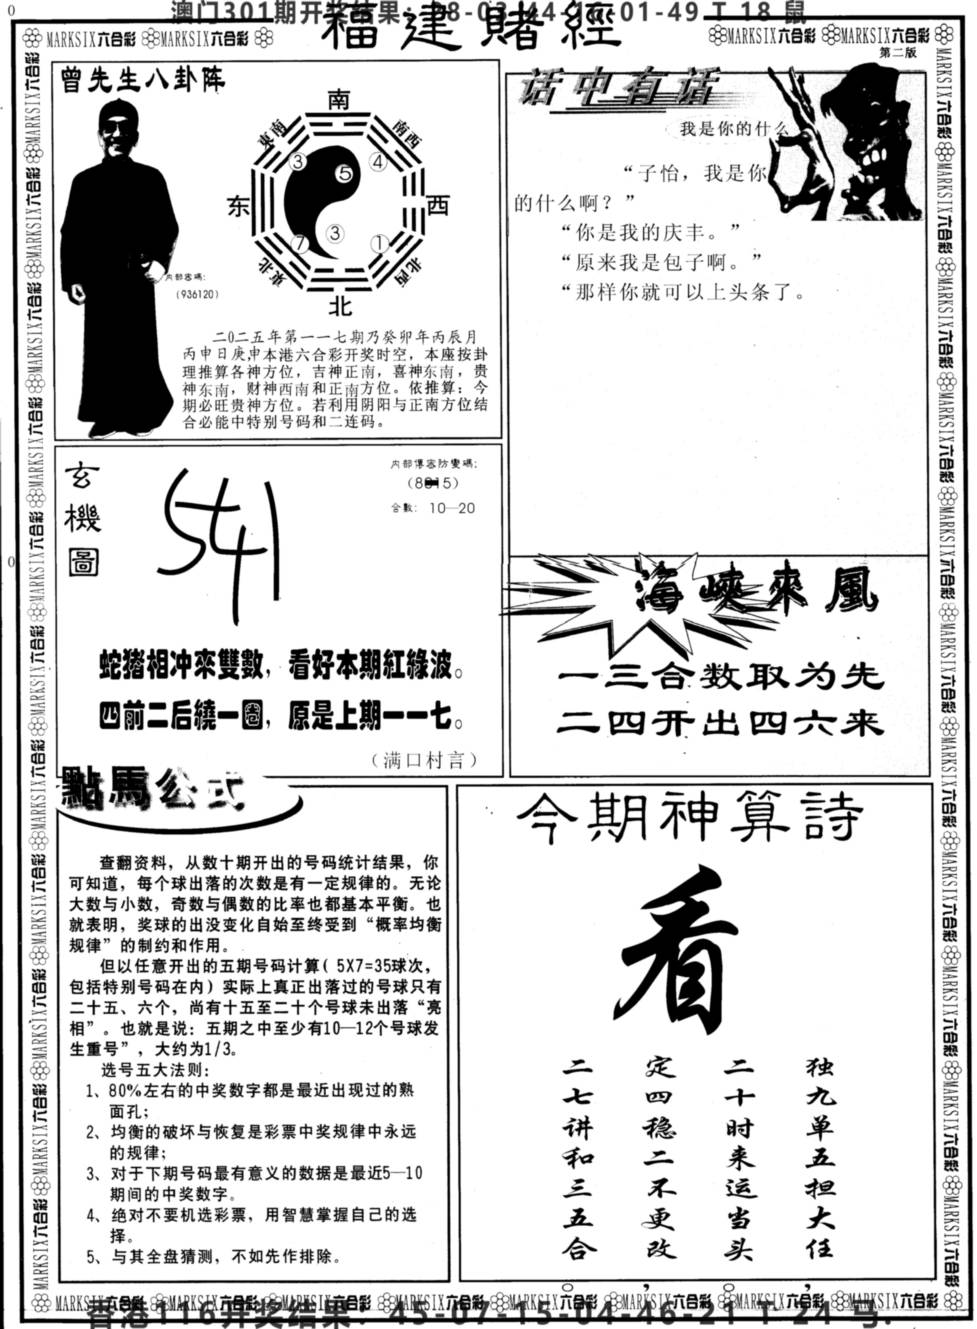 澳门301期开奖结果：
01-49 T 18 鼠
福建賭經
MARKSIX六合彩 MARKSIX六合彩
MARKSIX六合彩 MARKSIX六合彩
第二版
曾先生八卦阵
南
東南
南西
③
⑤
④
东
西
⑦
③
①
東北
北西
北
内部密碼：
（936120）
二0二五年第一一七期乃癸卯年丙辰月
丙申日庚申本港六合彩开奖时空，本座按卦
理推算各神方位，吉神正南，喜神东南，贵
神东南，财神西南和正南方位。依推算：今
期必旺贵神方位。若利用阴阳与正南方位结
合必能中特别号码和二连码。
话中有话
我是你的什么
“子怡，我是你
的什么啊？”
“你是我的庆丰。”
“原来我是包子啊。”
“那样你就可以上头条了。
玄機圖
内部傳密防變碼：
合數： 10—20
541
蛇猪相冲來雙數，看好本期紅綠波。
四前二后繞一圈，原是上期一一七。
（满口村言）
海峽來風
一三合数取为先
二四开出四六来
點馬公式
查翻资料，从数十期开出的号码统计结果，你
可知道，每个球出落的次数是有一定规律的。无论
大数与小数，奇数与偶数的比率也都基本平衡。也
就表明，奖球的出没变化自始至终受到“概率均衡
规律”的制约和作用。
但以任意开出的五期号码计算（5X7=35球次，
包括特别号码在内）实际上真正出落过的号球只有
二十五、六个，尚有十五至二十个号球未出落“亮
相”。也就是说：五期之中至少有10—12个号球发
生重号”，大约为1/3。
选号五大法则：
1、80%左右的中奖数字都是最近出现过的熟
面孔；
2、均衡的破坏与恢复是彩票中奖规律中永远
的规律；
3、对于下期号码最有意义的数据是最近5—10
期间的中奖数字。
4、绝对不要机选彩票，用智慧掌握自己的选
择。
5、与其全盘猜测，不如先作排除。
今期神算詩
看
独九单五担大任，
二十时来运当头。
定四稳二不更改，
二七讲和三五合。
MARKSIX六合彩
香港116开奖结果：45-07-15-04-46-21 T 24 马.